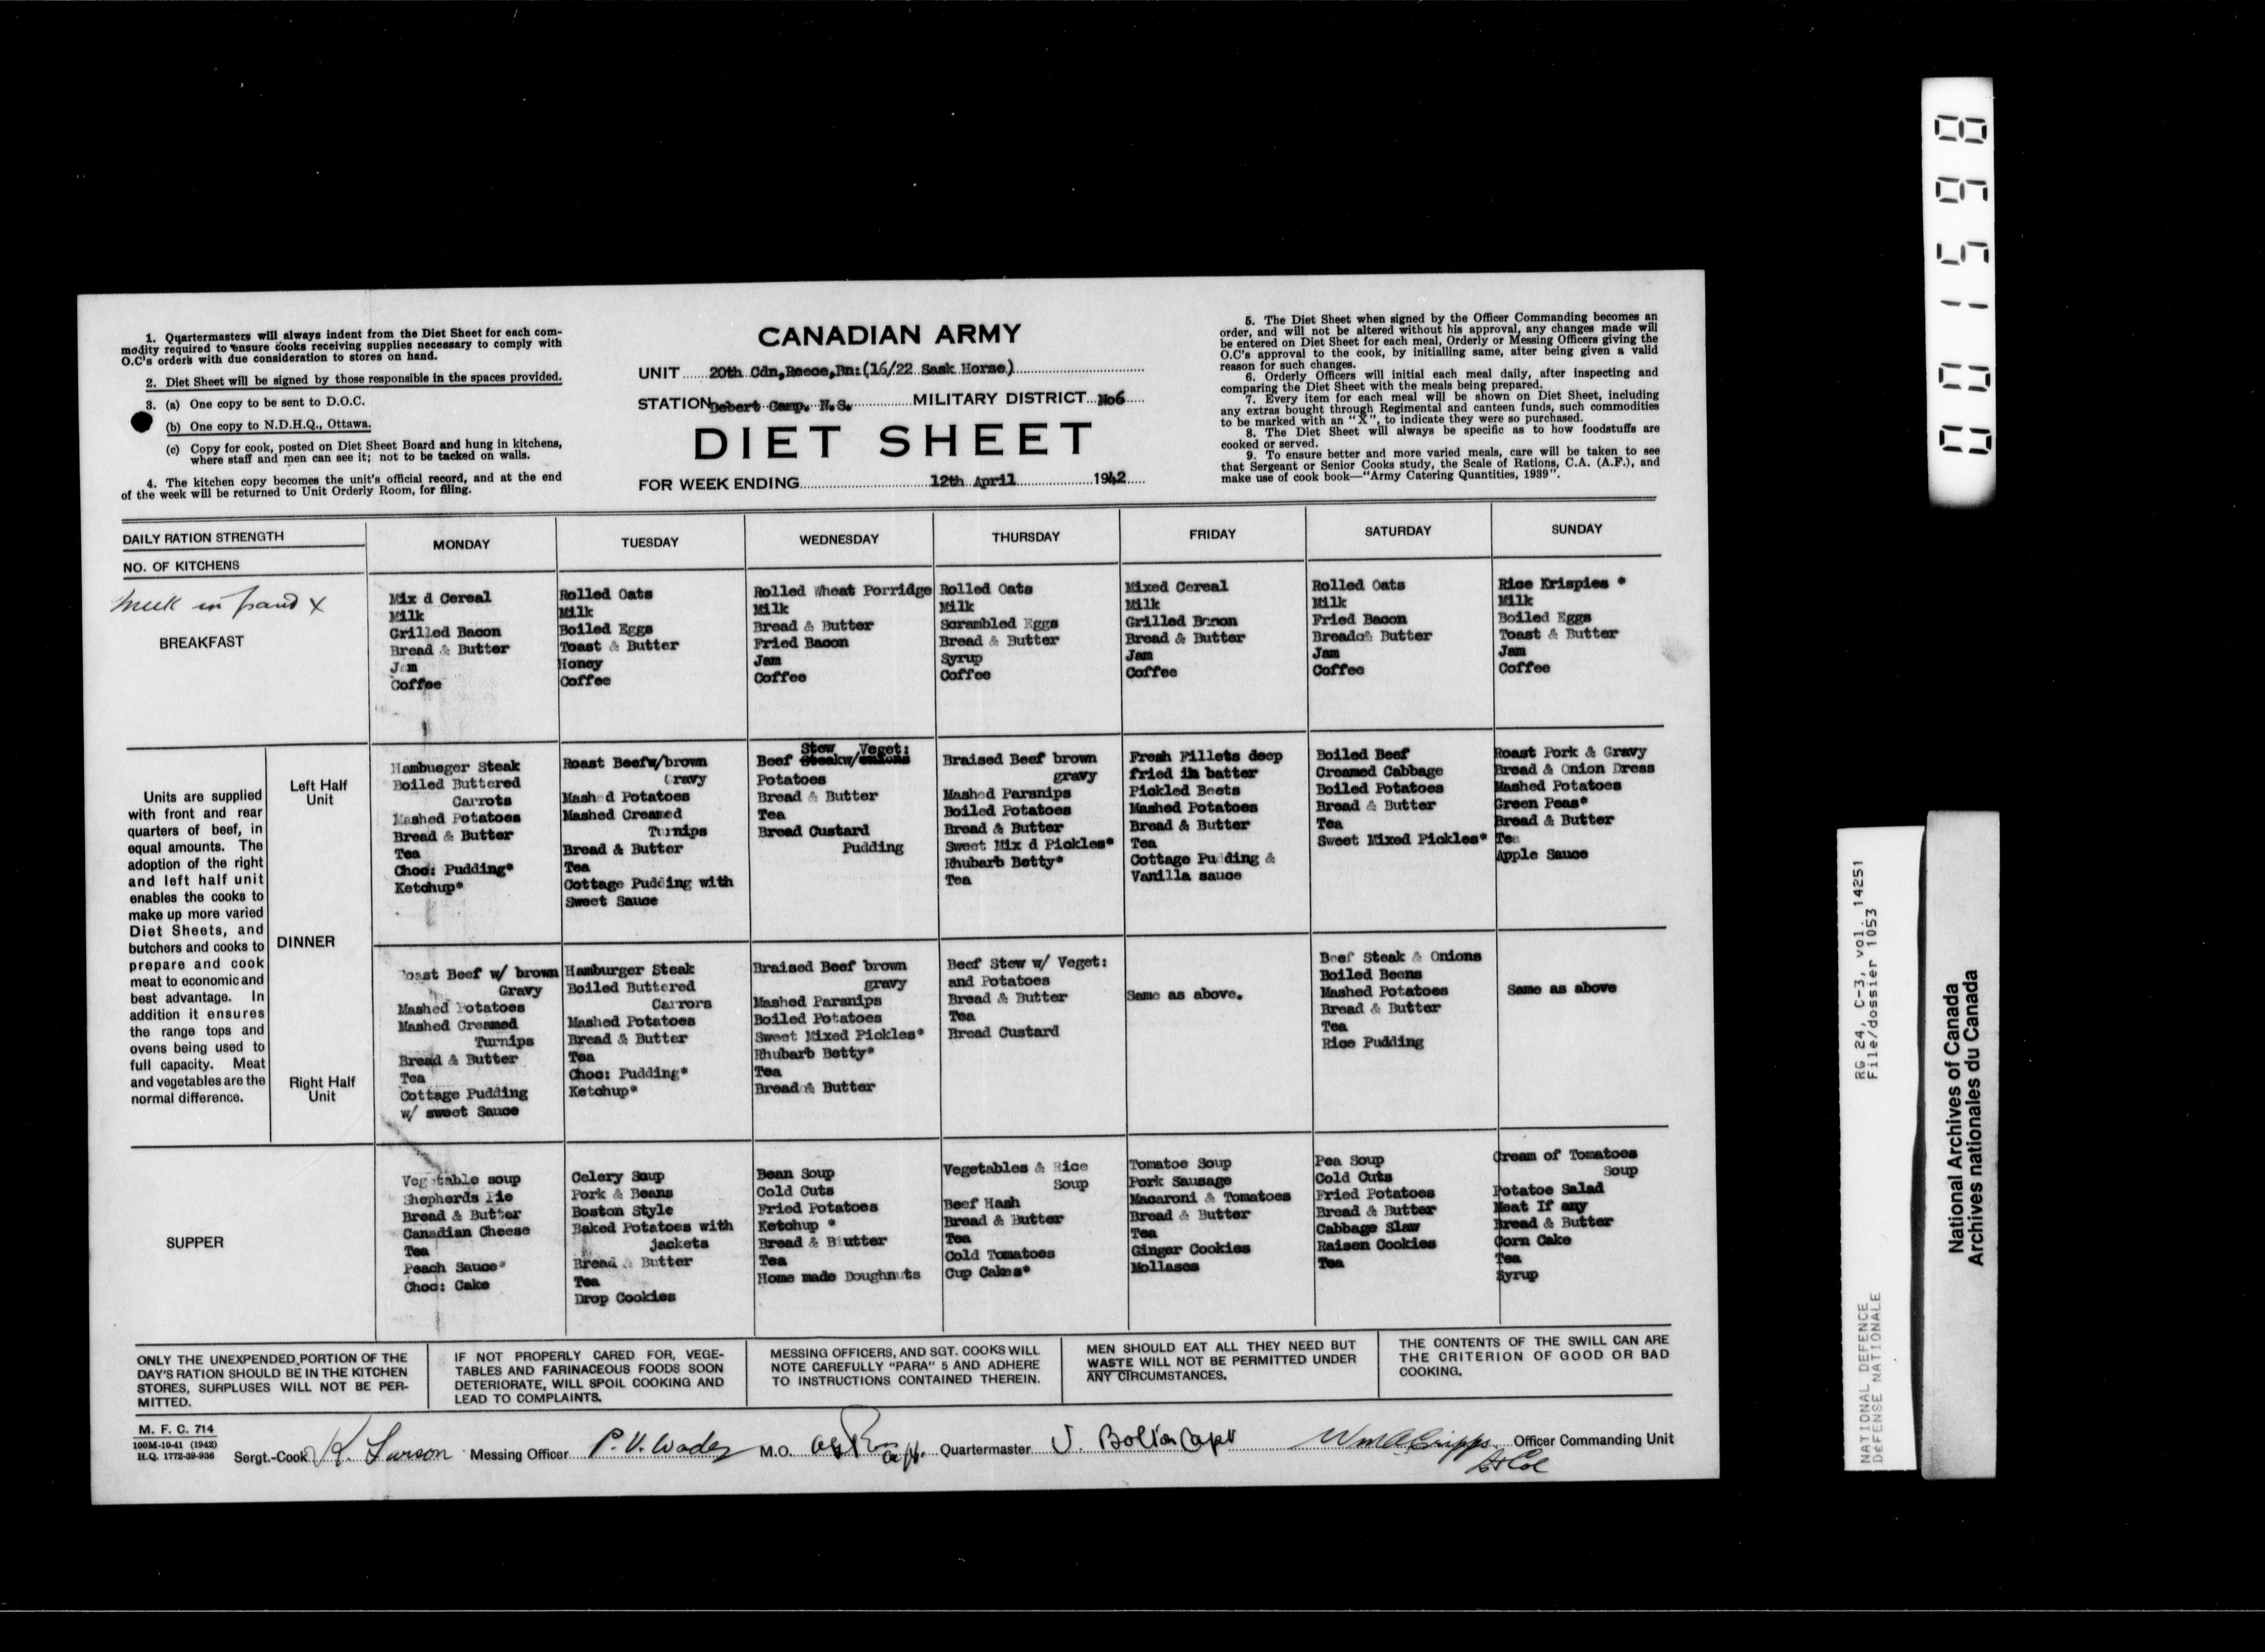 1. Quartermasters will always indent from the Diet Sheet for each com-
modity required to ensure cooks receiving supplies necessary to comply with
O.C's orders with due consideration to stores on hand.
2. Diet Sheet will be signed by those responsible in the spaces provided.
3. (a) One copy to be sent to D.O.C.
(b) One copy to N.D.H.Q., Ottawa.
(c) Copy for cook, posted on Diet Sheet Board and hung in kitchens,
where staff and men can see it; not to be tacked on walls.
4. The kitchen copy becomes the unit's official record, and at the end
of the week will be returned to Unit Orderly Room, for filing.
CANADIAN ARMY
UNIT 20th Cdn, Recce, Bn: (16/22 Sask Horse)
STATION Debert Camp. N.S. MILITARY DISTRICT No6
DIET SHEET
FOR WEEK ENDING 12th April 1942
5. The Diet Sheet when signed by the Officer Commanding becomes an
order, and will not be altered without his approval, any changes made will
be entered on Diet Sheet for each meal, Orderly or Messing Officers giving the
O.C's approval to the cook, by initialling same, after being given a valid
reason for such changes.
6. Orderly Officers will initial each meal daily, after inspecting and
comparing the Diet Sheet with the meals being prepared.
7. Every item for each meal will be shown on Diet Sheet, including
any extras bought through Regimental and canteen funds, such commodities
to be marked with an "X", to indicate they were so purchased.
8. The Diet Sheet will always be specific as to how foodstuffs are
cooked or served.
9. To ensure better and more varied meals, care will be taken to see
that Sergeant or Senior Cooks study, the Scale of Rations, C.A. (A.F.), and
make use of cook book—"Army Catering Quantities, 1939".
DAILY RATION STRENGTH
NO. OF KITCHENS
MONDAY
TUESDAY
WEDNESDAY
THURSDAY
FRIDAY
SATURDAY
SUNDAY
X
BREAKFAST
Mix d Cereal
Milk
Grilled Bacon
Bread & Butter
Jam
Coffee
Rolled Oats
Milk
Boiled Eggs
Toast & Butter
Honey
Coffee
Rolled Wheat Porridge
Milk
Bread & Butter
Fried Bacon
Jam
Coffee
Rolled Oats
Milk
Scrambled Eggs
Bread & Butter
Syrup
Coffee
Mixed Cereal
Milk
Grilled Bacon
Bread & Butter
Jam
Coffee
Rolled Oats
Milk
Fried Bacon
Bread& Butter
Jam
Coffee
Rice Krispies *
Milk
Boiled Eggs
Toast & Butter
Jam
Coffee
Units are supplied
with front and rear
quarters of beef, in
equal amounts. The
adoption of the right
and left half unit
enables the cooks to
make up more varied
Diet Sheets, and
butchers and cooks to
prepare and cook
meat to economic and
best advantage. In
addition it ensures
the range tops and
ovens being used to
full capacity. Meat
and vegetables are the
normal difference.
DINNER
Left Half
Unit
Hambueger Steak
Boiled Buttered
Carrots
Mashed Potatoes
Bread & Butter
Tea
Choc: Pudding*
Ketchup*
Roast Beefw/brown
Gravy
Mashed Potatoes
Mashed Creamed
Turnips
Bread & Butter
Tea
Cottage Pudding with
Sweet Sauce
Stew Veget:
Beef Steakw/onions
Potatoes
Bread & Butter
Tea
Bread Custard
Pudding
Braised Beef brown
gravy
Mashed Parsnips
Boiled Potatoes
Bread & Butter
Sweet Mix d Pickles*
Rhubarb Betty*
Tea
Fresh Fillets deep
fried in batter
Pickled Beets
Mashed Potatoes
Bread & Butter
Tea
Cottage Pudding &
Vanilla sauce
Boiled Beef
Creamed Cabbage
Boiled Potatoes
Bread & Butter
Tea
Sweet Mixed Pickles*
Roast Pork & Gravy
Bread & Onion Dress
Mashed Potatoes
Green Peas*
Bread & Butter
Tea
Apple Sauce
Right Half
Unit
Roast Beef w/ brown
Gravy
Mashed Potatoes
Mashed Creamed
Turnips
Bread & Butter
Tea
Cottage Pudding
w/ sweet Sauce
Hamburger Steak
Boiled Buttered
Carrors
Mashed Potatoes
Bread & Butter
Tea
Choc: Pudding*
Ketchup*
Braised Beef brown
gravy
Mashed Parsnips
Boiled Potatoes
Sweet Mixed Pickles*
Rhubarb Betty*
Tea
Bread & Butter
Beef Stew w/ Veget:
and Potatoes
Bread & Butter
Tea
Bread Custard
Same as above.
Beef Steak & Onions
Boiled Beens
Mashed Potatoes
Bread & Butter
Tea
Rice Pudding
Same as above
SUPPER
Vegetable soup
Shepherds Pie
Bread & Butter
Canadian Cheese
Tea
Peach Sauce*
Choc: Cake
Celery Soup
Pork & Beans
Boston Style
Baked Potatoes with
jackets
Bread & Butter
Tea
Drop Cookies
Bean Soup
Cold Cuts
Fried Potatoes
Ketchup *
Bread & Butter
Tea
Home made Doughnuts
Vegetables & Rice
Soup
Beef Hash
Bread & Butter
Tea
Cold Tomatoes
Cup Cakes*
Tomatoe Soup
Pork Sausage
Macaroni & Tomatoes
Bread & Butter
Tea
Ginger Cookies
Mollases
Pea Soup
Cold Cuts
Fried Potatoes
Bread & Butter
Cabbage Slaw
Raisen Cookies
Tea
Cream of Tomatoes
Soup
Potatoe Salad
Meat If any
Bread & Butter
Corn Cake
Tea
Syrup
ONLY THE UNEXPENDED PORTION OF THE
DAY'S RATION SHOULD BE IN THE KITCHEN
STORES, SURPLUSES WILL NOT BE PER-
MITTED.
IF NOT PROPERLY CARED FOR, VEGE-
TABLES AND FARINACEOUS FOODS SOON
DETERIORATE, WILL SPOIL COOKING AND
LEAD TO COMPLAINTS.
MESSING OFFICERS, AND SGT. COOKS WILL
NOTE CAREFULLY "PARA" 5 AND ADHERE
TO INSTRUCTIONS CONTAINED THEREIN.
MEN SHOULD EAT ALL THEY NEED BUT
WASTE WILL NOT BE PERMITTED UNDER
ANY CIRCUMSTANCES.
THE CONTENTS OF THE SWILL CAN ARE
THE CRITERION OF GOOD OR BAD
COOKING.
M. F. C. 714
100M-10-41 (1942)
H.Q. 1772-39-936
Sergt.-Cook K. Larson Messing Officer P. V. M.O. Capt. Quartermaster J. Bolton Capt Wm A Cripps Officer Commanding Unit
Lt Col
001598
RG 24, C-3, vol. 14251
File/dossier 1053
NATIONAL DEFENCE
DEFENSE NATIONALE
National Archives of Canada
Archives nationales du Canada